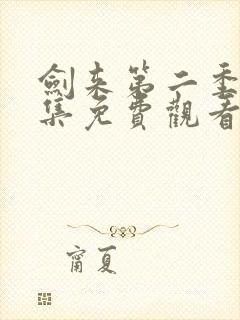 劍來第二季
集免費觀看
甯夏